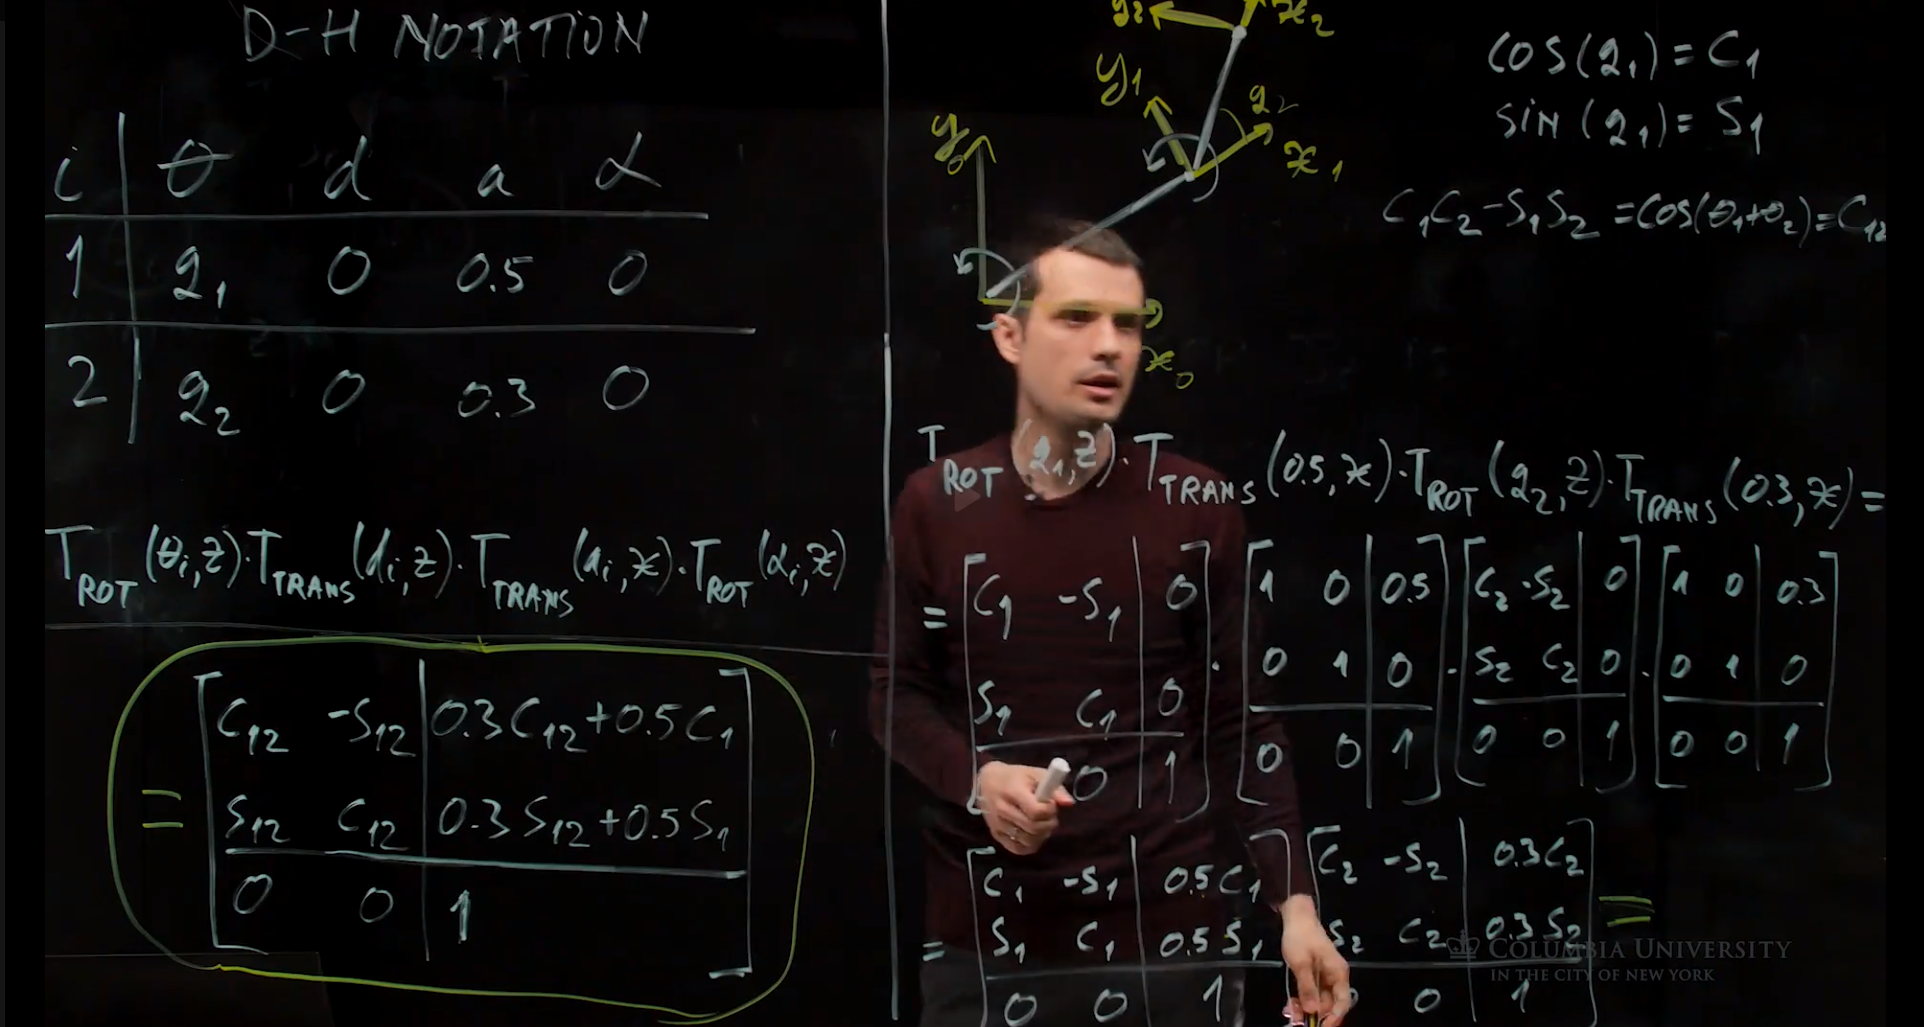 D-H NOTATION
i θ d a α
1 q₁ 0 0.5 0
2 q₂ 0 0.3 0
T_ROT(θᵢ,z)·T_TRANS(dᵢ,z)·T_TRANS(aᵢ,x)·T_ROT(αᵢ,x)
= [ C₁₂ -S₁₂ | 0.3C₁₂+0.5C₁ ]
S₁₂ C₁₂ | 0.3S₁₂+0.5S₁
0 0 | 1
y₂ x₂
y₁ q₂
x₁
y₀
x₀
cos(q₁)=C₁
sin(q₁)=S₁
C₁C₂-S₁S₂=cos(θ₁+θ₂)=C₁₂
T_ROT(q₁,z)·T_TRANS(0.5,x)·T_ROT(q₂,z)·T_TRANS(0.3,x)=
= [ C₁ -S₁ | 0 ] · [ 1 0 | 0.5 ] [ C₂ -S₂ | 0 ] [ 1 0 | 0.3 ]
S₁ C₁ | 0 0 1 | 0 · S₂ C₂ | 0 · 0 1 | 0
0 | 1 0 0 | 1 0 0 | 1 0 0 | 1
[ C₁ -S₁ | 0.5C₁ ] [ C₂ -S₂ | 0.3C₂ ] =
= S₁ C₁ | 0.5S₁ S₂ C₂ | 0.3S₂
0 0 | 1 0 | 1
COLUMBIA UNIVERSITY
IN THE CITY OF NEW YORK